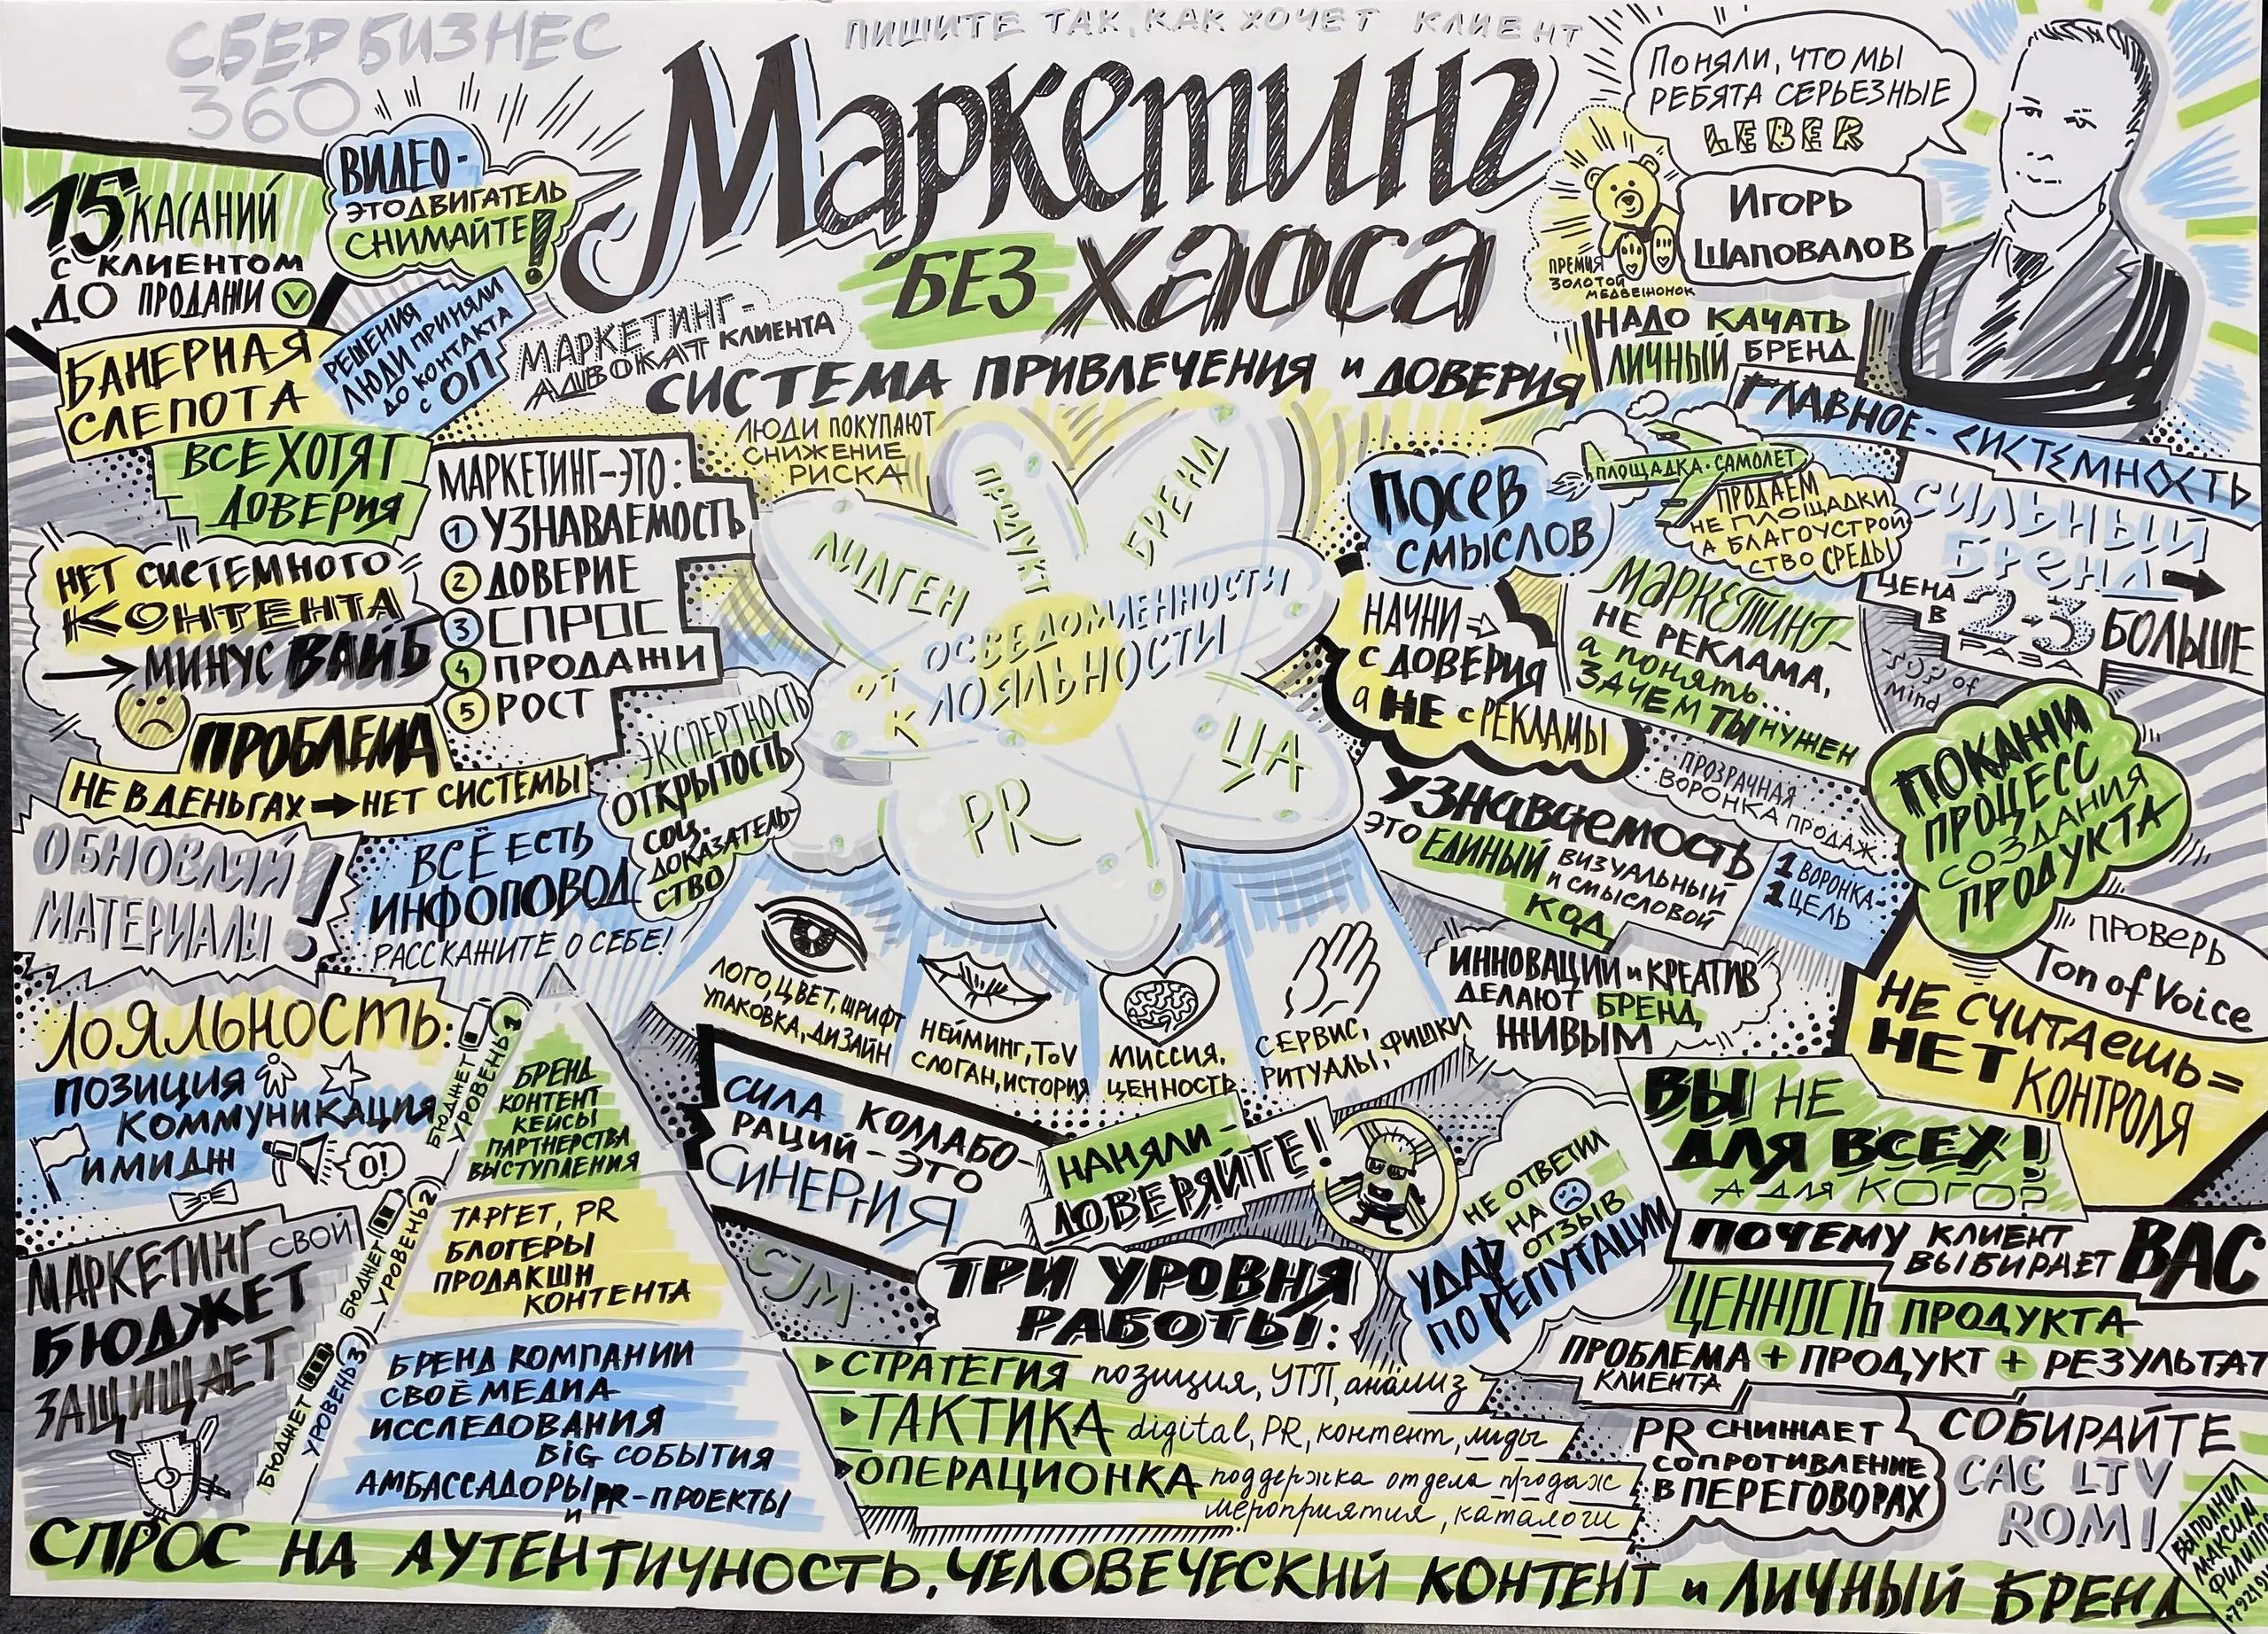 СБЕР БИЗНЕС
360
ПИШИТЕ ТАК, КАК ХОЧЕТ КЛИЕНТ
Маркетинг
БЕЗ хаоса
СИСТЕМА ПРИВЛЕЧЕНИЯ и ДОВЕРИЯ
ПОНЯЛИ, ЧТО МЫ
РЕБЯТА СЕРЬЕЗНЫЕ
LEBER
ИГОРЬ
ШАПОВАЛОВ
ПРЕМИЯ
ЗОЛОТОЙ
МЕДВЕЖОНОК
НАДО КАЧАТЬ
ЛИЧНЫЙ БРЕНД
ГЛАВНОЕ - СИСТЕМНОСТЬ
15 КАСАНИЙ
С КЛИЕНТОМ
ДО ПРОДАЖИ
ВИДЕО-
ЭТО ДВИГАТЕЛЬ
СНИМАЙТЕ!
РЕШЕНИЯ
ЛЮДИ ПРИНЯЛИ
ДО КОНТАКТА
С ОП
МАРКЕТИНГ-
АДВОКАТ КЛИЕНТА
БАНЕРНАЯ
СЛЕПОТА
ВСЕ ХОТЯТ
ДОВЕРИЯ
НЕТ СИСТЕМНОГО
КОНТЕНТА
МИНУС ВАЙБ
ПРОБЛЕМА
НЕ В ДЕНЬГАХ → НЕТ СИСТЕМЫ
МАРКЕТИНГ-ЭТО:
1 УЗНАВАЕМОСТЬ
2 ДОВЕРИЕ
3 СПРОС
4 ПРОДАЖИ
5 РОСТ
ЛЮДИ ПОКУПАЮТ
СНИЖЕНИЕ
РИСКА
ЛИДГЕН
ПРОДУКТ
БРЕНД
ОТ ОСВЕДОМЛЕННОСТИ
К ЛОЯЛЬНОСТИ
PR
ЦА
ЭКСПЕРТНОСТЬ
ОТКРЫТОСТЬ
СОЦ.
ДОКАЗАТЕЛЬ-
СТВО
ОБНОВЛЯЙ
МАТЕРИАЛЫ!
ВСЁ ЕСТЬ
ИНФОПОВОД
РАССКАЖИТЕ О СЕБЕ!
ПОСЕВ
СМЫСЛОВ
ПЛОЩАДКА-САМОЛЕТ
ПРОДАЕМ
НЕ ПЛОЩАДКИ
А БЛАГОУСТРОЙ
СТВО СРЕДЫ
СИЛЬНЫЙ
БРЕНД →
ЦЕНА
В 2-3 БОЛЬШЕ
РАЗА
TOP of
Mind
НАЧНИ
С ДОВЕРИЯ
а НЕ с РЕКЛАМЫ
МАРКЕТИНГ-
НЕ РЕКЛАМА,
а понять...
ЗАЧЕМ ТЫ НУЖЕН
ПРОЗРАЧНАЯ
ВОРОНКА ПРОДАЖ
УЗНАВАЕМОСТЬ
ЭТО ЕДИНЫЙ ВИЗУАЛЬНЫЙ
И СМЫСЛОВОЙ
КОД
1 ВОРОНКА-
1 ЦЕЛЬ
ПОКАЖИ
ПРОЦЕСС
СОЗДАНИЯ
ПРОДУКТА
ПРОВЕРЬ
Ton of Voice
ИННОВАЦИИ и КРЕАТИВ
ДЕЛАЮТ БРЕНД
ЖИВЫМ
НЕ СЧИТАЕШЬ =
НЕТ КОНТРОЛЯ
ЛОГО, ЦВЕТ, ШРИФТ
УПАКОВКА, ДИЗАЙН
НЕЙМИНГ, ToV
СЛОГАН, ИСТОРИЯ
МИССИЯ,
ЦЕННОСТЬ
СЕРВИС,
РИТУАЛЫ, ФИШКИ
ЛОЯЛЬНОСТЬ:
ПОЗИЦИЯ
КОММУНИКАЦИЯ
ИМИДЖ
О!
МАРКЕТИНГ СВОЙ
БЮДЖЕТ
ЗАЩИЩАЕТ
БЮДЖЕТ
УРОВЕНЬ 1
БРЕНД
КОНТЕНТ
КЕЙСЫ
ПАРТНЕРСТВА
ВЫСТУПЛЕНИЯ
БЮДЖЕТ
УРОВЕНЬ 2
ТАРГЕТ, PR
БЛОГЕРЫ
ПРОДАКШН
КОНТЕНТА
БЮДЖЕТ
УРОВЕНЬ 3
БРЕНД КОМПАНИИ
СВОЁ МЕДИА
ИССЛЕДОВАНИЯ
BIG СОБЫТИЯ
АМБАССАДОРЫ и PR-ПРОЕКТЫ
СИЛА КОЛЛАБО-
РАЦИЙ - ЭТО
СИНЕРГИЯ
CJM
НАНЯЛИ -
ДОВЕРЯЙТЕ!
НЕ ОТВЕТИЛ
НА ОТЗЫВ
УДАР
ПО РЕПУТАЦИИ
ВЫ НЕ
ДЛЯ ВСЕХ!
А ДЛЯ КОГО?
ПОЧЕМУ КЛИЕНТ
ВЫБИРАЕТ ВАС
ЦЕННОСТЬ ПРОДУКТА
ПРОБЛЕМА + ПРОДУКТ + РЕЗУЛЬТАТ
КЛИЕНТА
ТРИ УРОВНЯ
РАБОТЫ:
СТРАТЕГИЯ позиция, УТП, анализ
ТАКТИКА digital, PR, контент, лиды
ОПЕРАЦИОНКА поддержка отдела продаж
мероприятия, каталоги
PR СНИЖАЕТ
СОПРОТИВЛЕНИЕ
В ПЕРЕГОВОРАХ
СОБИРАЙТЕ
CAC LTV
ROMI
ВЫПОЛНИЛ
МАКСИМ
СПРОС НА АУТЕНТИЧНОСТЬ, ЧЕЛОВЕЧЕСКИЙ КОНТЕНТ и ЛИЧНЫЙ БРЕНД